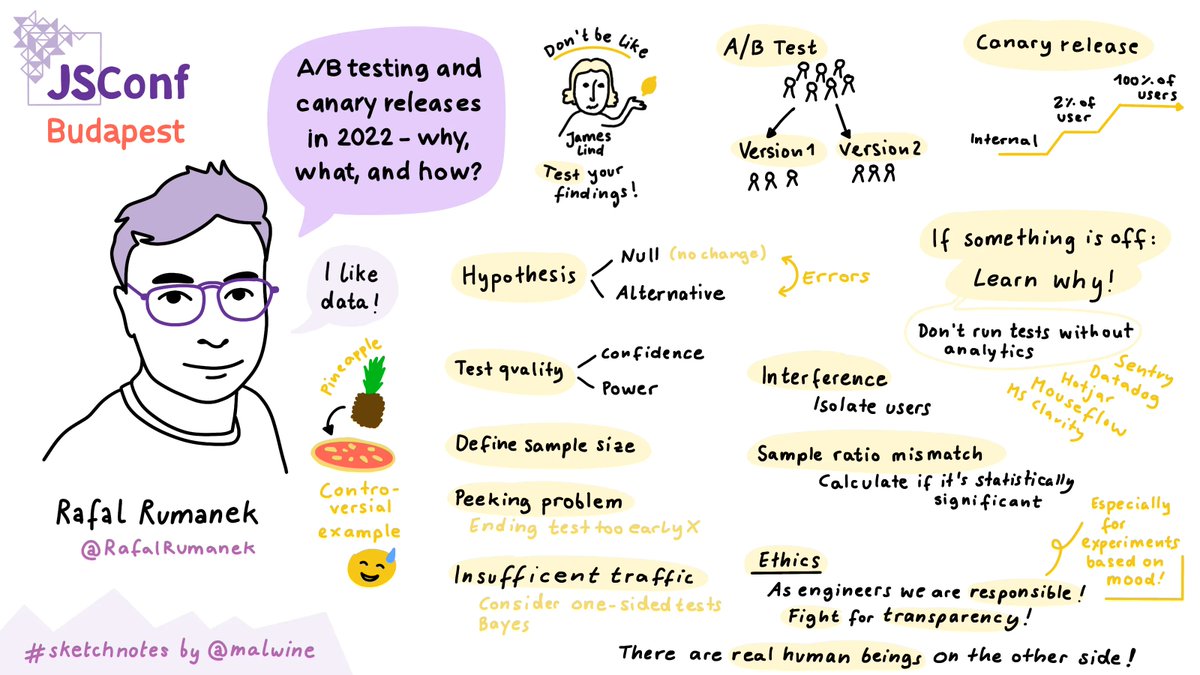 JSConf
Budapest
A/B testing and
canary releases
in 2022 - why,
what, and how?
I like
data!
Pineapple
Contro-
versial
example
Rafal Rumanek
@RafalRumanek
#sketchnotes by @malwine
Don't be like
James
Lind
Test your
findings!
A/B Test
Version 1
Version 2
Canary release
Internal
2% of
user
100% of
users
Hypothesis
Null (no change)
Alternative
Errors
Test quality
Confidence
Power
Define sample size
Peeking problem
Ending test too early X
Insufficent traffic
Consider one-sided tests
Bayes
If something is off:
Learn why!
Don't run tests without
analytics
Sentry
Datadog
Hotjar
Mouseflow
MS Clarity
Interference
Isolate users
Sample ratio mismatch
Calculate if it's statistically
significant
Ethics
As engineers we are responsible!
Fight for transparency!
Especially
for
experiments
based on
mood!
There are real human beings on the other side!